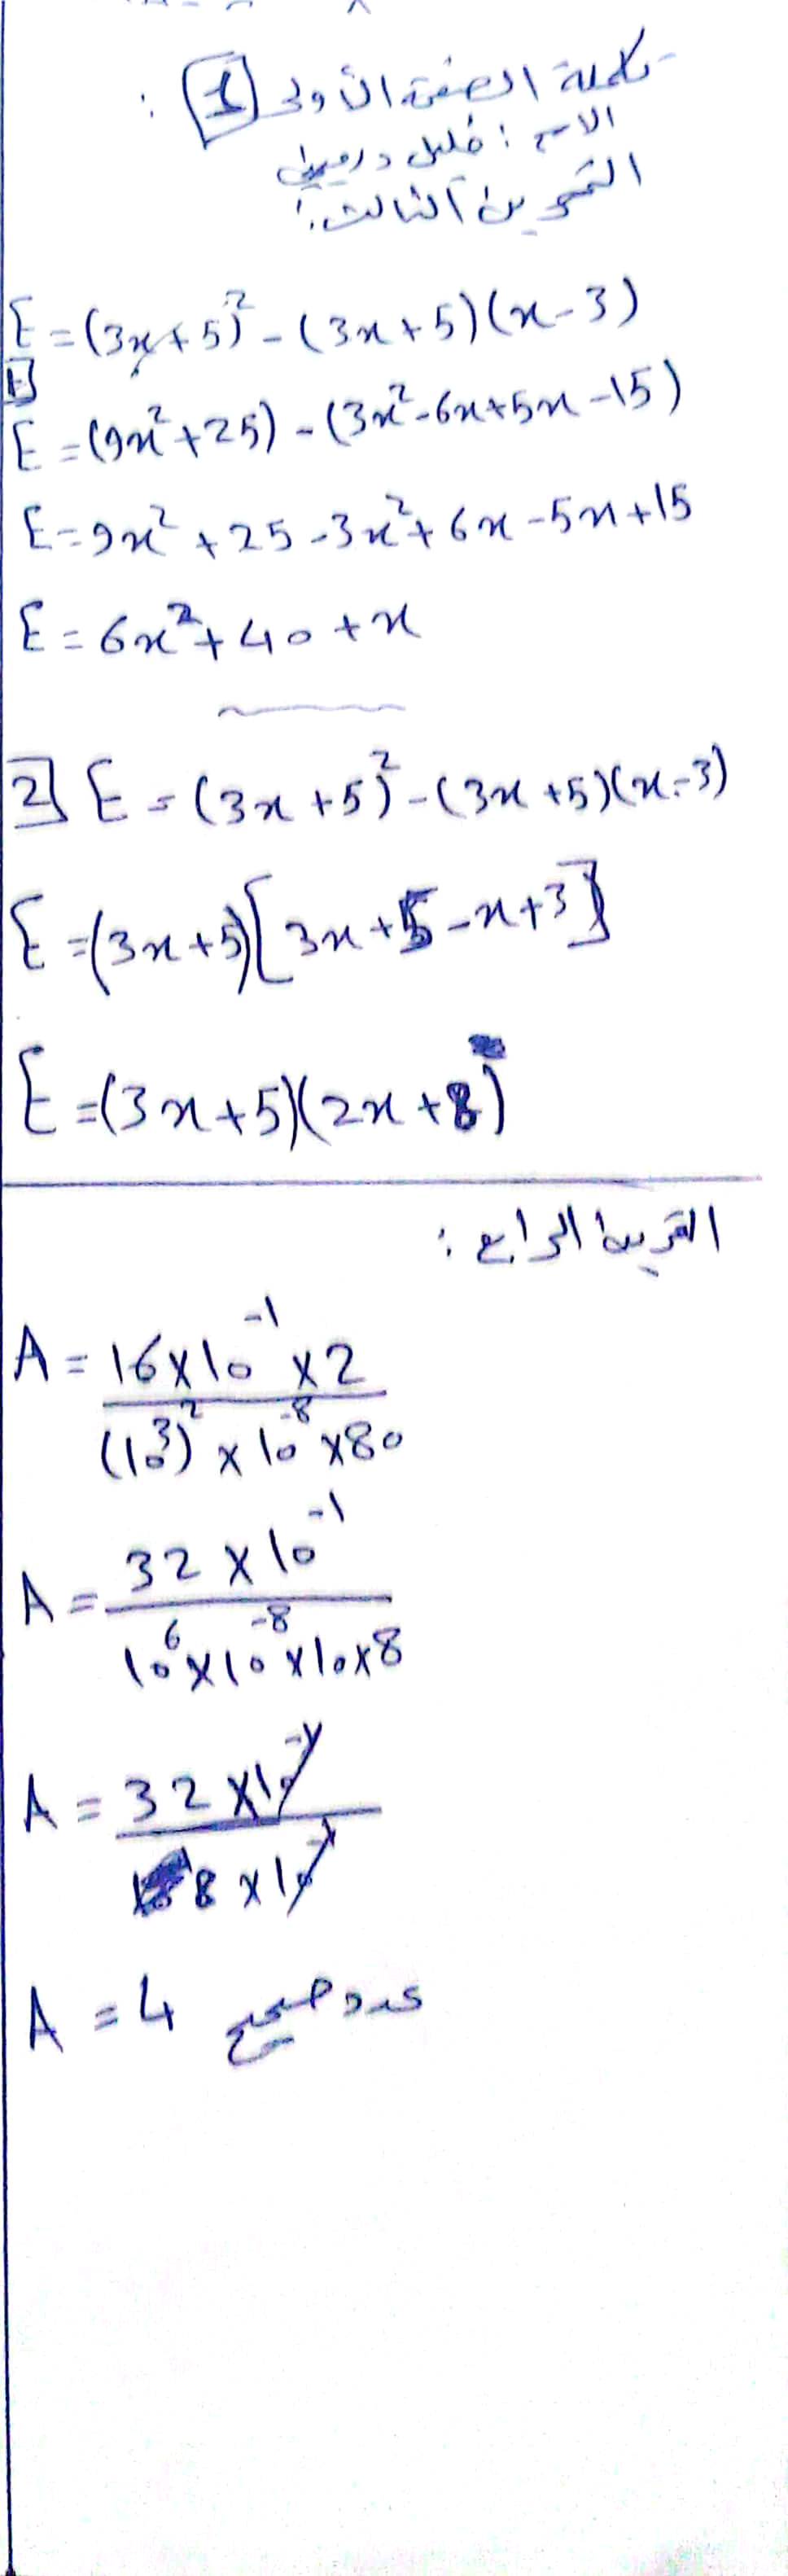 تكملة الصفحة الأولى 1 :
الاسم : خليل
التمرين الثالث :
E = (3x+5)² - (3x+5)(x-3)
1
E = (9x²+25) - (3x²-6x+5x-15)
E = 9x² + 25 - 3x² + 6x - 5x + 15
E = 6x² + 40 + x
2 E = (3x+5)² - (3x+5)(x-3)
E = (3x+5)[3x+5-x+3]
E = (3x+5)(2x+8)
التمرين الرابع :
A = 16×10⁻¹×2
(10³)²×10⁻⁸×80
A = 32×10⁻¹
10⁶×10⁻⁸×10×8
A = 32×10⁻¹
8×10⁻¹
A = 4 عدد صحيح